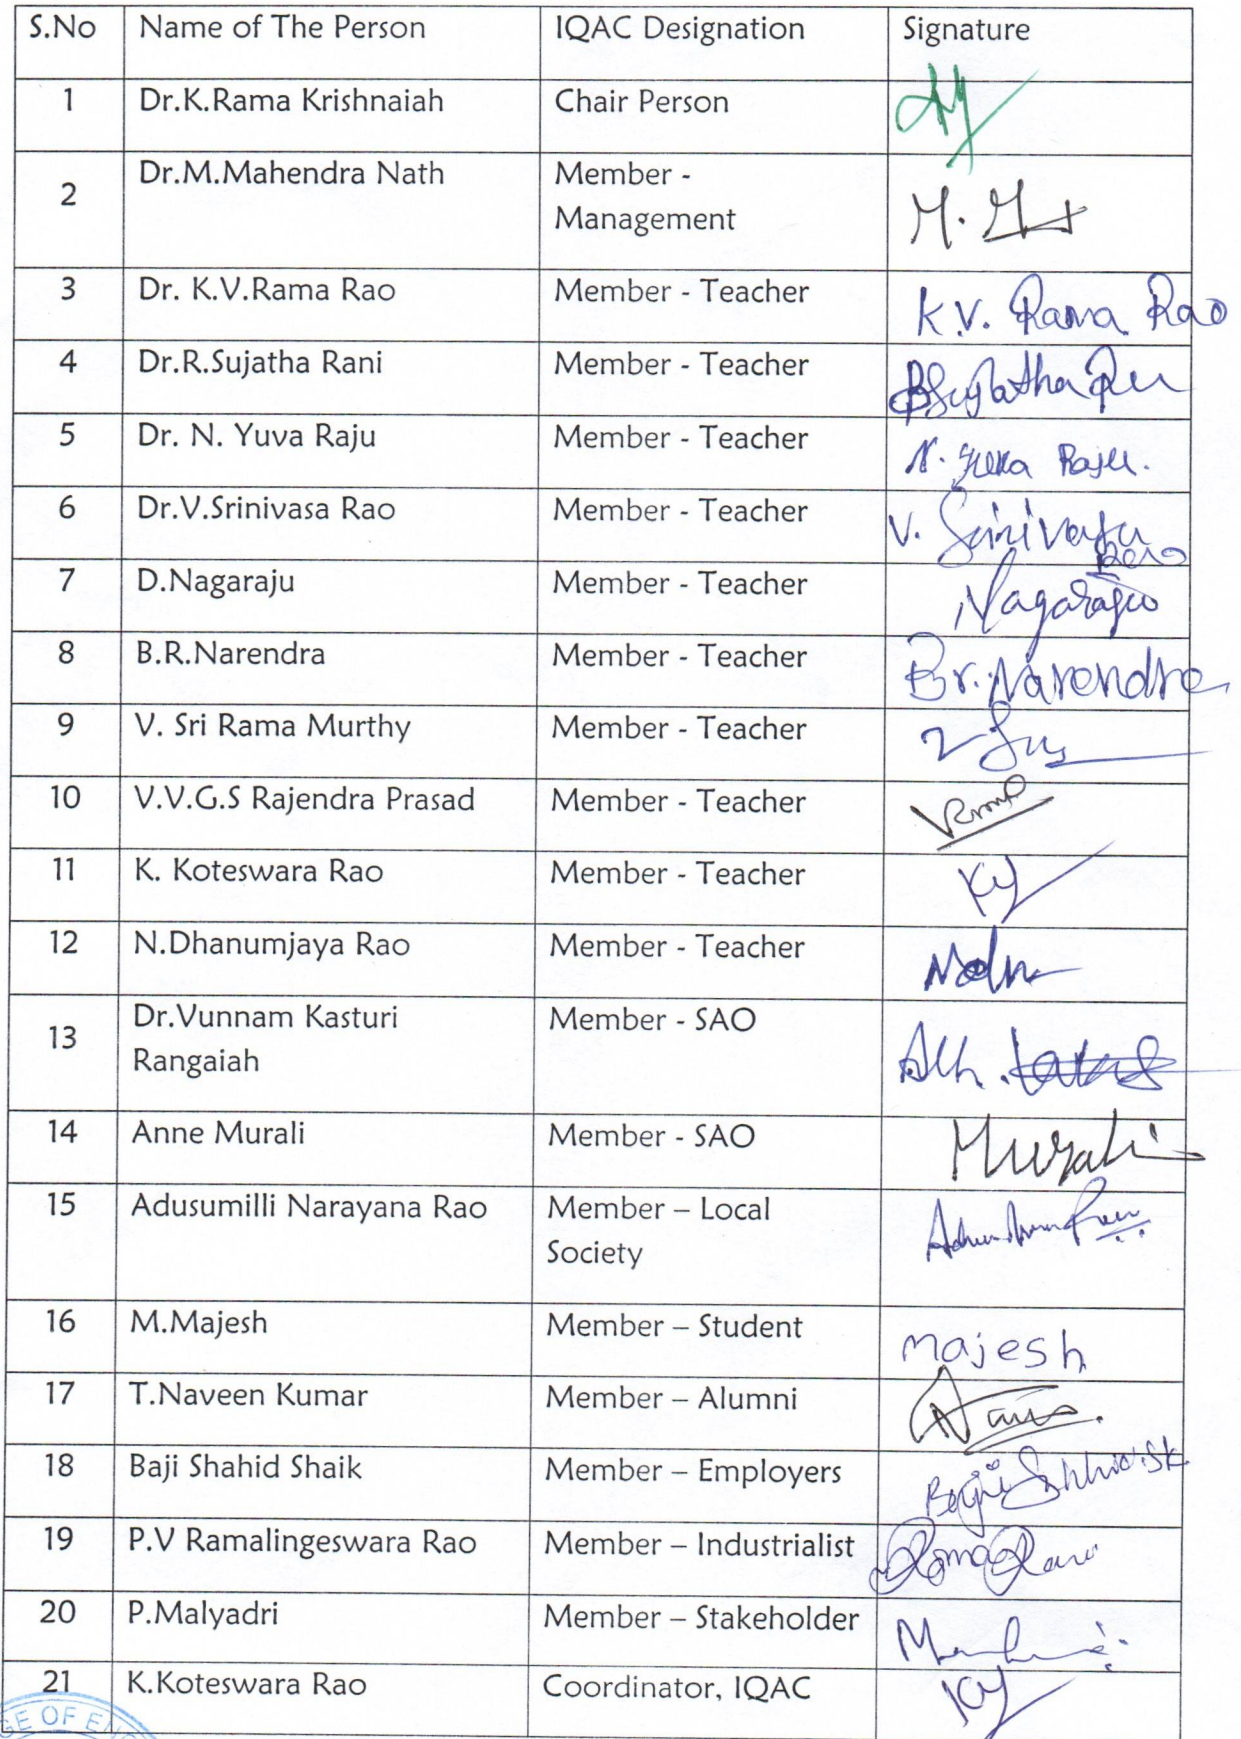 S.No Name of The Person IQAC Designation Signature
1 Dr.K.Rama Krishnaiah Chair Person
2 Dr.M.Mahendra Nath Member -
Management M.
3 Dr. K.V.Rama Rao Member - Teacher K.V. Rama Rao
4 Dr.R.Sujatha Rani Member - Teacher
5 Dr. N. Yuva Raju Member - Teacher N. Yuva Raju.
6 Dr.V.Srinivasa Rao Member - Teacher V. Srinivasa
Rao
7 D.Nagaraju Member - Teacher Nagaraju
8 B.R.Narendra Member - Teacher Br. Narendra
9 V. Sri Rama Murthy Member - Teacher
10 V.V.G.S Rajendra Prasad Member - Teacher
11 K. Koteswara Rao Member - Teacher
12 N.Dhanumjaya Rao Member - Teacher
13 Dr.Vunnam Kasturi
Rangaiah Member - SAO
14 Anne Murali Member - SAO Murali
15 Adusumilli Narayana Rao Member – Local
Society
16 M.Majesh Member – Student majesh
17 T.Naveen Kumar Member – Alumni
18 Baji Shahid Shaik Member – Employers
19 P.V Ramalingeswara Rao Member – Industrialist
20 P.Malyadri Member – Stakeholder
21 K.Koteswara Rao Coordinator, IQAC
GE OF EN